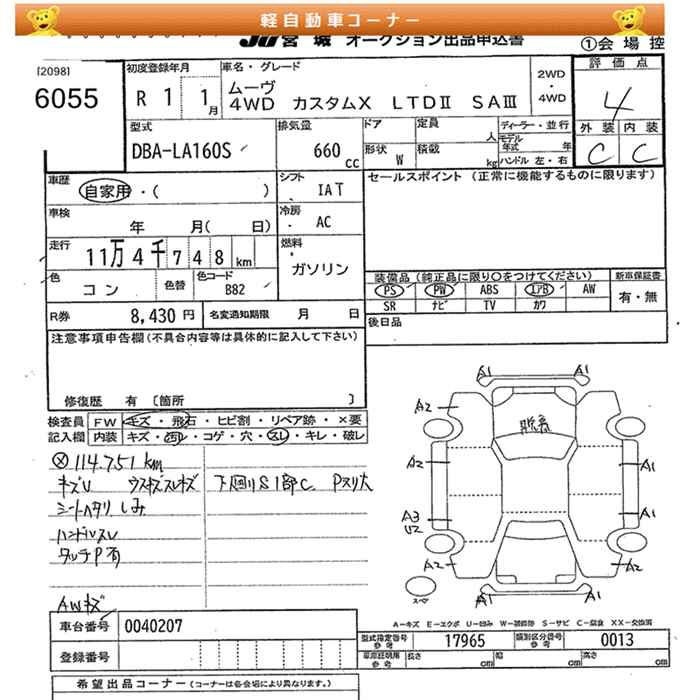 軽自動車コーナー
JU宮城 オークション出品申込書
①会場控
[2098]
6055
初度登録年月
R 1 1月
車名・グレード
ムーヴ
4WD カスタムX LTDⅡ SAⅢ
2WD
・
4WD
評価点
4
外装 内装
C C
型式
DBA-LA160S
排気量
660 cc
ドア 定員 人
形状 W 積載 kg
ディーラー・並行
モデル年式 年
ハンドル 左・右
車歴
自家用・( )
シフト
IAT
セールスポイント (正常に機能するものに限ります)
車検
年 月( 日)
冷房
AC
走行
11万4千748km
燃料
ガソリン
色
コン
色替
色コード
B82
装備品 (純正品に限り〇をつけてください)
新車保証書
PS PW ABS エアB AW
有・無
SR ナビ TV カワ
R券 8,430円
名変通知期限 月 日
後日品
注意事項申告欄(不具合内容等は具体的に記入して下さい)
修復歴 有 [箇所 ]
検査員 FW キズ・飛石・ヒビ割・リペア跡・×要
記入欄 内装 キズ・凹レ・コゲ・穴・スレ・キレ・破レ
114.751 km
キズU ウスキズスレキズ 下回りS1部C
シートヘタリ しみ
ハンドルスレ
タッチP有
AWキズ
A1 A1
A2 A1
脱着
A2 A1
A3 A1
U2
A2 A2
スペ
A1 A1
A-キズ E-エクボ U-凹み W-補修跡 S-サビ C-腐食 XX-交換済
車台番号 0040207
型式指定番号 参考 17965
類別区分番号 参考 0013
登録番号
車庫証明用 参考 長さ cm 幅 cm 高さ cm
希望出品コーナー (コーナーは各会場により異なります。)